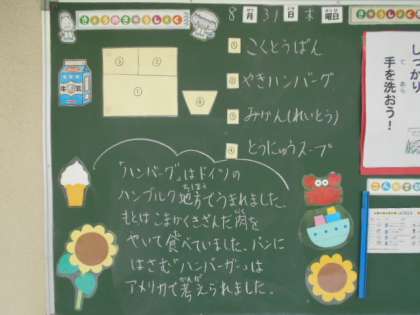 きょうのきゅうしょく
8月31日木曜日
きゅうしょく
① こくとうぱん
② やきハンバーグ
③ みかん(れいとう)
④ とうにゅうスープ
② ③
①
④
牛乳
しっかり
手を洗おう!
「ハンバーグ」はドイツの
ハンブルク地方でうまれました。
もとはこまかくきざんだ肉を
やいて食べていました。パンに
はさむ"ハンバーガー"は
アメリカで考えられました。